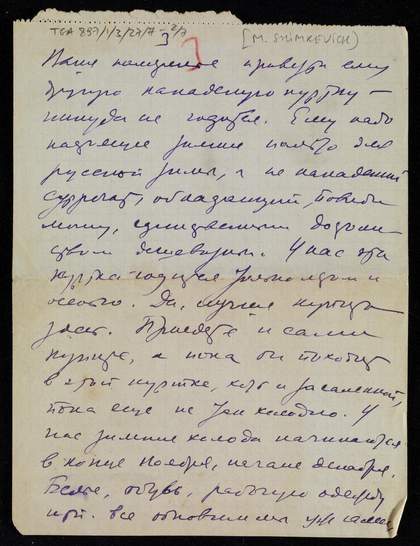 TGA 897/1/3/27/7 2/7
[M. SHIMKEVICH]
Ваше намерение привезти ему
другую канадскую куртку –
никуда не годится. Ему надо
настоящее зимнее пальто для
русской зимы, а не канадский
суррогат, обладающий, по-види-
мому, единственным достоин-
ством дешевизны. У нас эта
куртка годится только летом и
осенью. Да, лучше купить
здесь. Приедете и сами
купите, а пока он походит
в этой куртке, хоть и засаленной,
пока еще не так холодно. У
нас зимние холода начинаются
в конце ноября, начале декабря.
Белье, обувь, рабочую одежду
и пр. все обновим мы уж сами